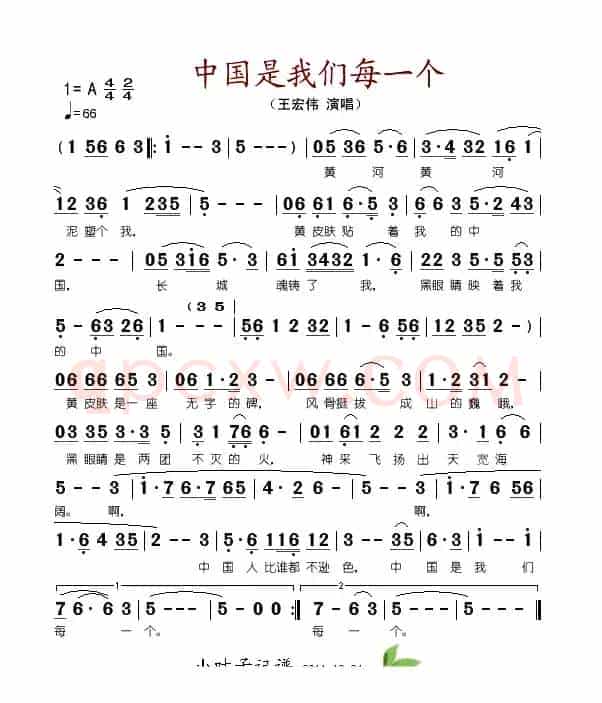 中国是我们每一个
1= A 4/4 2/4
（王宏伟 演唱）
♩=66
( 1 56 6 3 ‖: i - - 3 | 5 - - - ) | 05 36 5·6 | 3·4 32 16 |
黄 河 黄 河
12 36 1 235 | 5 - - - | 06 61 6·5 3 | 6 6 3 5·2 43 |
泥 塑个 我， 黄皮肤贴 着 我 的中
2 - - - | 05 3i6 5·3 | 61 3432 1·6 | 03 23 5·5 53 |
国， 长 城 魂铸 了 我， 黑眼睛映着我
(3 5)
5 - 63 26 | 1 - - - | 56 1 2 32 | 1 - 6 56 | 12 35 2 - |
的 中 国。
06 66 65 3 | 06 1·2 3 | 02 66 6·5 | 3·2 31 2 |
黄皮肤是一座 无字的碑， 风骨挺拔 成山的巍峨，
03 35 3·3 5 | 3·1 76 6 - | 01 61 2 2 | 3 5 3 2 3 |
黑眼睛是两团 不灭的火， 神采飞扬出天宽海
5 - - 3 | i·7 6·7 65 | 4·2 6 - | 5 - - 3 | i·7 i 7 56 |
阔。 啊， 啊，
1·6 4 35 | 2 - - - | 3 2 35 6 | 5·6 116 12 3 | 3 2 35 6 | i - - i |
中国人比谁都不逊色， 中国是我们
1 2
7 6·6 3 | 5 - - - | 5 - 0 0 :‖ 7 6·6 3 | 5 - - - | 5 - - - ‖
每 一 个。 每 一 个。
qpcxw.COM